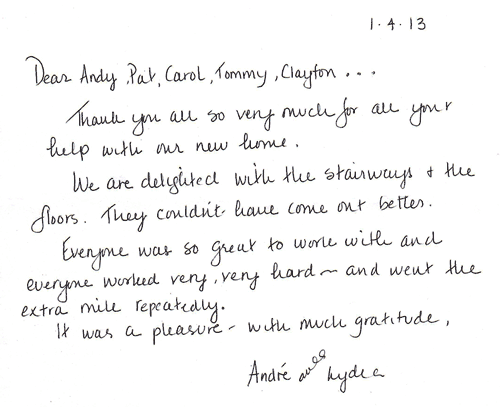 1.4.13
Dear Andy, Pat, Carol, Tommy, Clayton...
Thank you all so very much for all your
help with our new home.
We are delighted with the stairways & the
floors. They couldn't have come out better.
Everyone was so great to work with and
everyone worked very, very hard – and went the
extra mile repeatedly.
It was a pleasure – with much gratitude,
André and Lydia